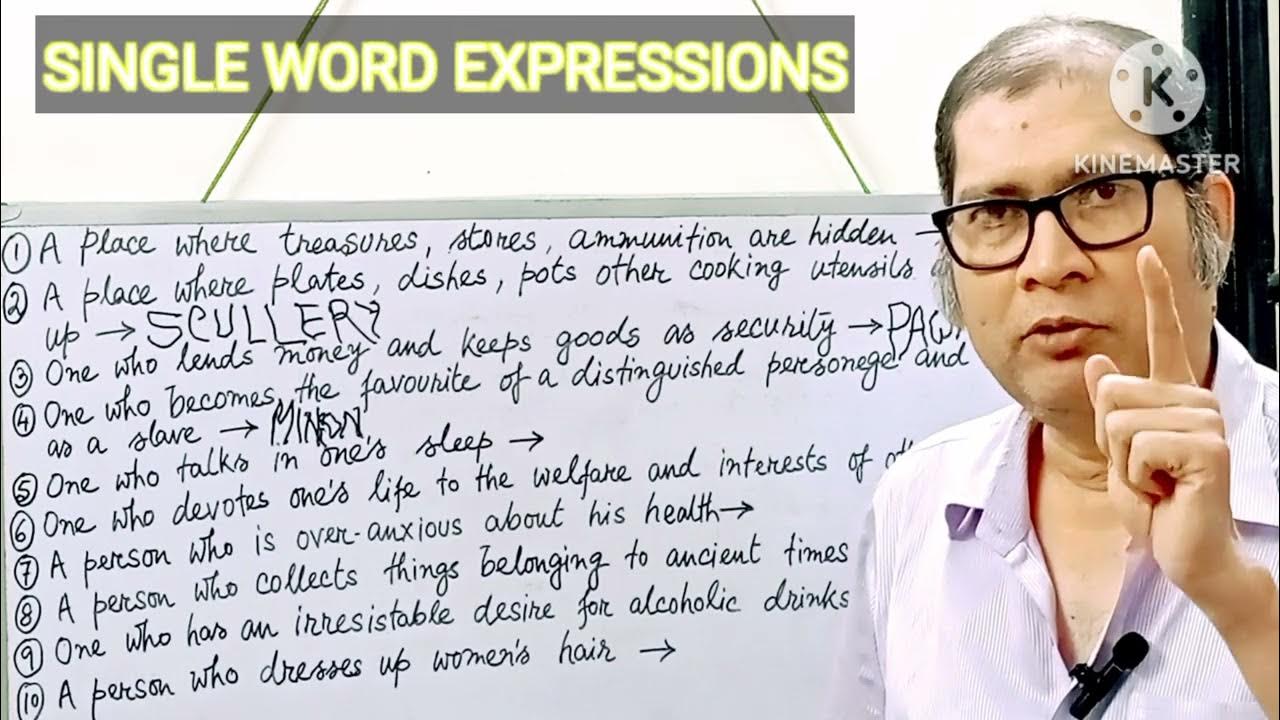 SINGLE WORD EXPRESSIONS
K
KINEMASTER
① A place where treasures, stores, ammunition are hidden →
② A place where plates, dishes, pots other cooking utensils
up → SCULLERY
③ One who lends money and keeps goods as security →
④ One who becomes the favourite of a distinguished personege and
as a slave →
⑤ One who talks in one's sleep →
⑥ One who devotes one's life to the welfare and interests of
⑦ A person who is over-anxious about his health→
⑧ A person who collects things belonging to ancient times
⑨ One who has an irresistable desire for alcoholic drinks
⑩ A person who dresses up women's hair →